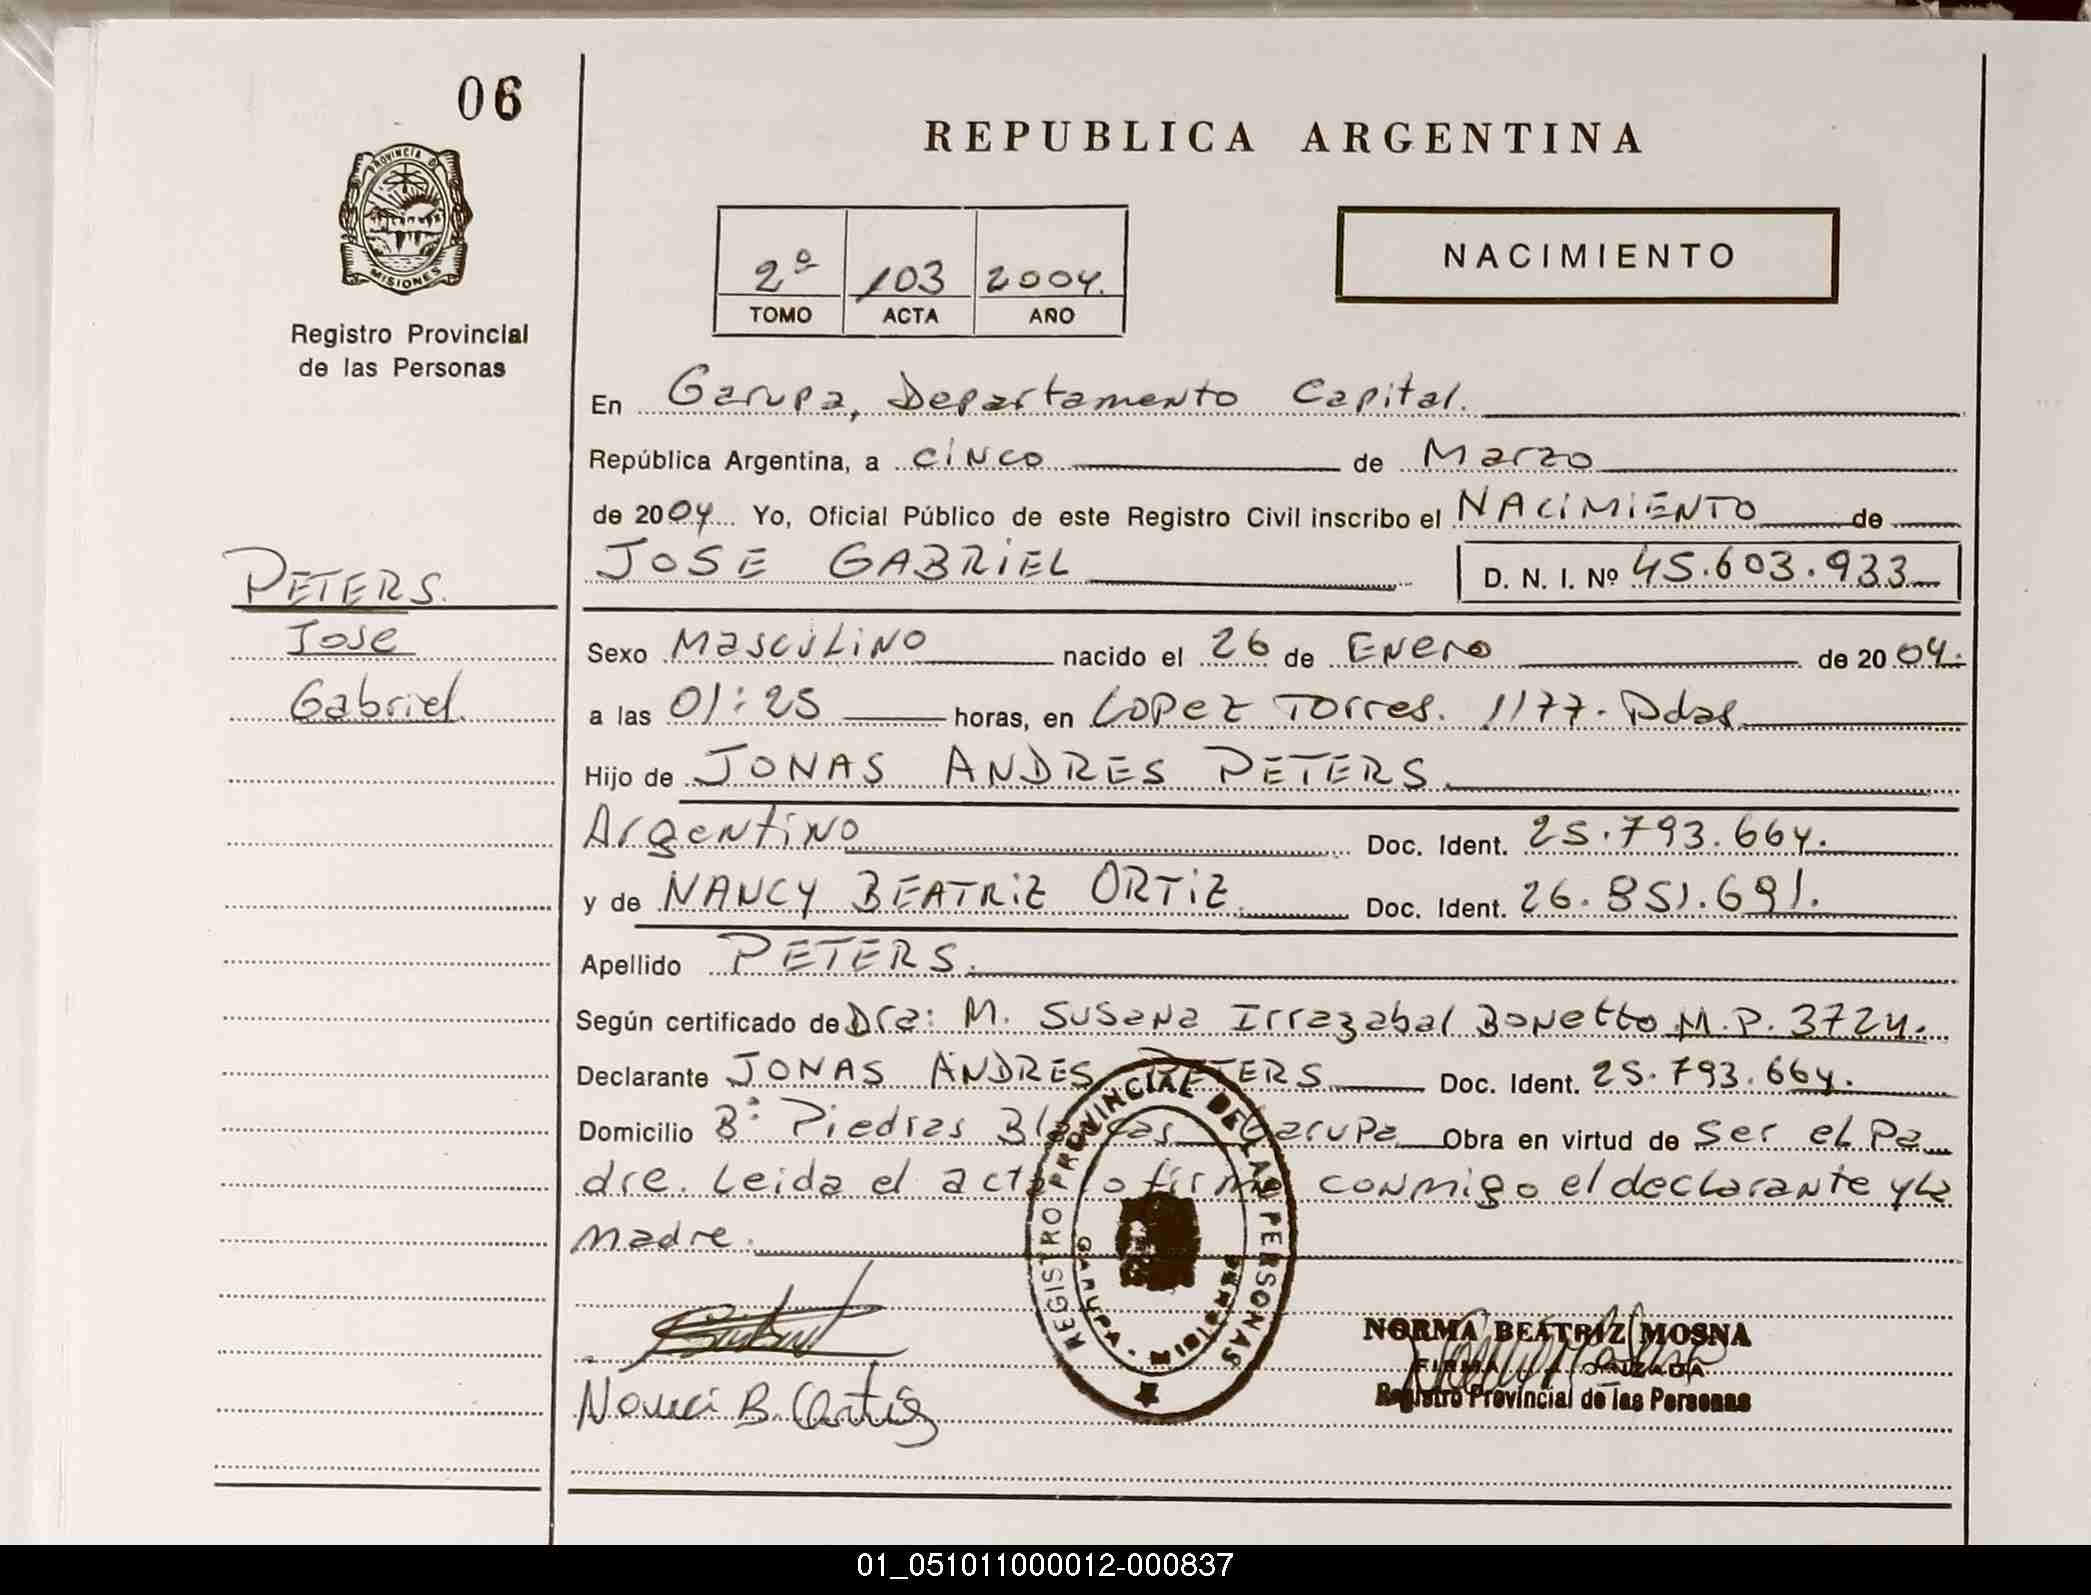 06
REPUBLICA ARGENTINA
PROVINCIA D
MISIONES
Registro Provincial
de las Personas
NACIMIENTO
2º 103 2004.
TOMO ACTA AÑO
En Garupa, Departamento Capital.
República Argentina, a cinco de Marzo
de 2004 Yo, Oficial Público de este Registro Civil inscribo el NACIMIENTO de
JOSE GABRIEL D. N. I. Nº 45.603.933
PETERS.
Jose
Gabriel.
Sexo Masculino nacido el 26 de Enero de 2004.
a las 01:25 horas, en Lopez Torres. 1177. Pdas
Hijo de JONAS ANDRES PETERS
Argentino Doc. Ident. 25.793.664.
y de NANCY BEATRIZ ORTIZ. Doc. Ident. 26.851.691.
Apellido PETERS.
Según certificado de Dra: M. Susana Irrazabal Bonetto M.P. 3724.
Declarante JONAS ANDRES PETERS Doc. Ident. 25.793.664.
Domicilio Bº Piedras Blancas Garupa Obra en virtud de ser el Pa
dre. Leida el acta lo firma conmigo el declarante y la
madre.
REGISTRO PROVINCIAL DE LAS PERSONAS
GARUPA
NORMA BEATRIZ MOSNA
FIRMA AUTORIZADA
Registro Provincial de las Personas
Nanci B. Ortiz
01_051011000012-000837